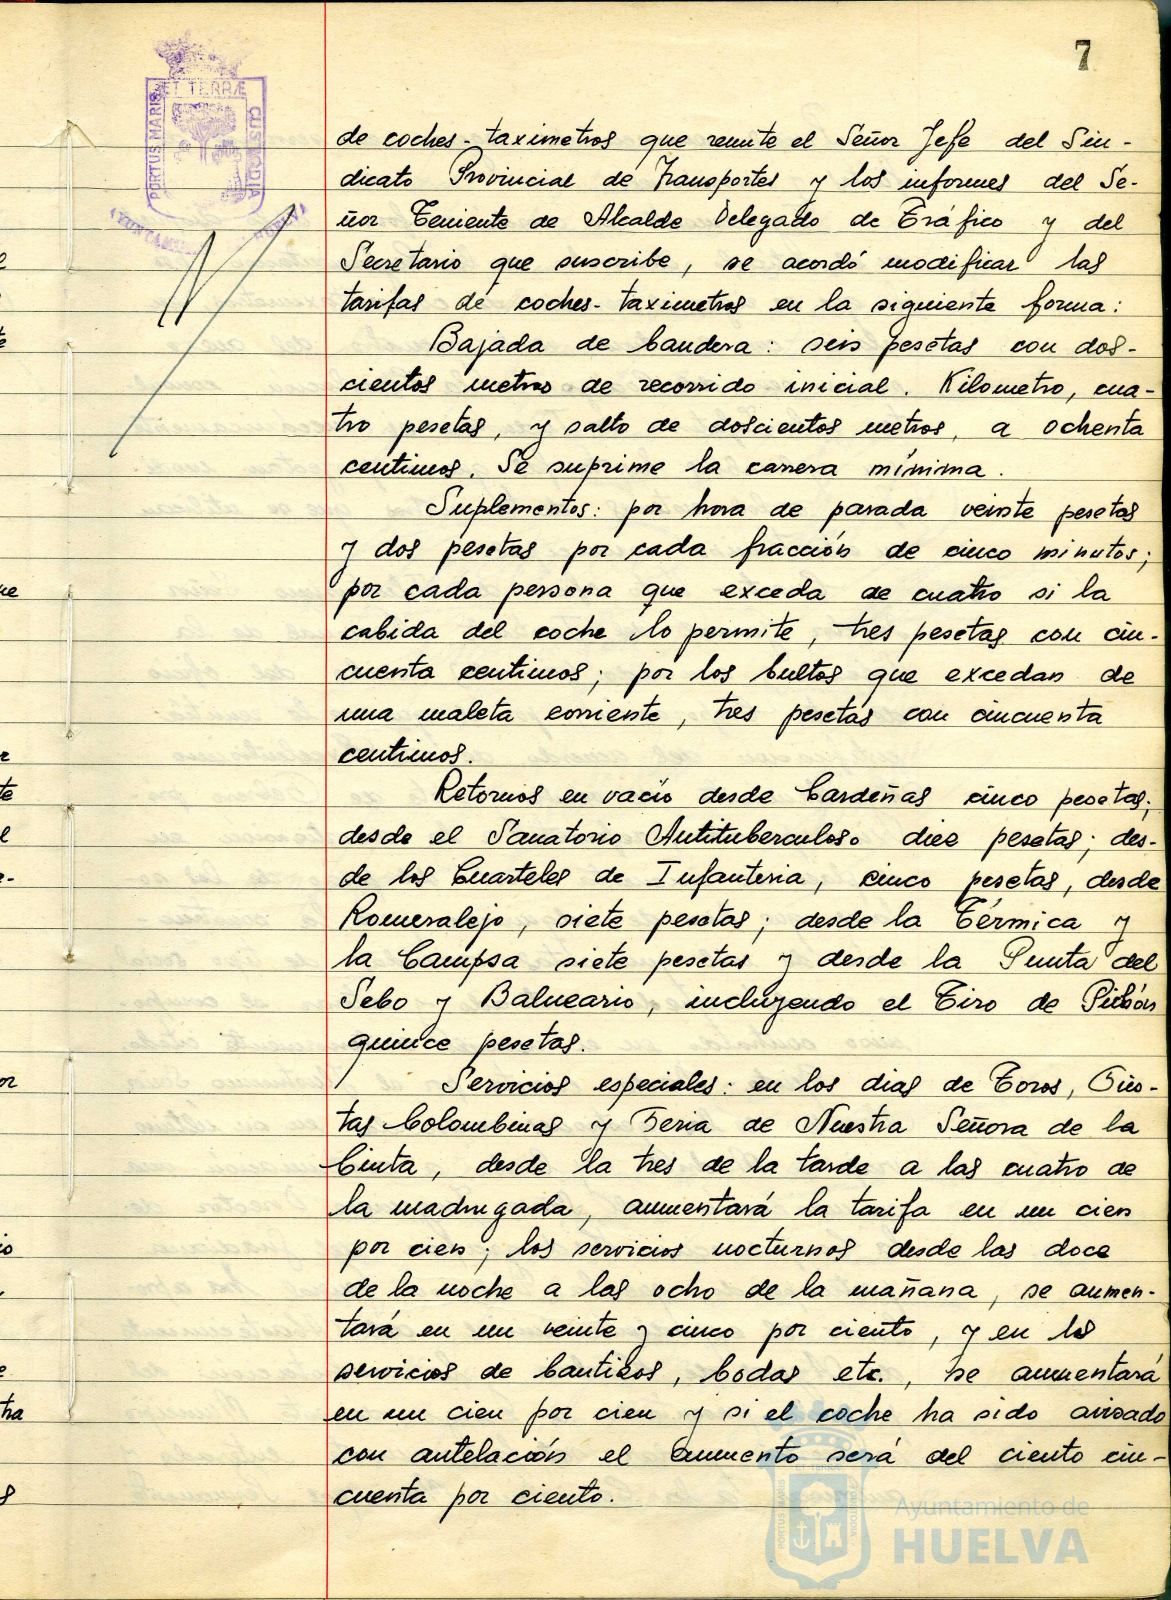 7
ET TERRÆ
PORTUS MARIS
CUSTODIA
de coches-taximetros que remite el Señor Jefe del Sin-
dicato Provincial de Transportes y los informes del Se-
ñor Teniente de Alcalde Delegado de Tráfico y del
Secretario que suscribe, se acordó modificar las
tarifas de coches-taximetros en la siguiente forma:
Bajada de bandera: seis pesetas con dos-
cientos metros de recorrido inicial. Kilometro, cua-
tro pesetas, y salto de doscientos metros, a ochenta
centimos. Se suprime la carrera mínima.
Suplementos: por hora de parada veinte pesetas
y dos pesetas por cada fracción de cinco minutos;
por cada persona que exceda de cuatro si la
cabida del coche lo permite, tres pesetas con cin-
cuenta centimos; por los bultos que excedan de
una maleta corriente, tres pesetas con cincuenta
centimos.
Retornos en vacío desde Cardeñas cinco pesetas;
desde el Sanatorio Antituberculoso diez pesetas; des-
de los Cuarteles de Infanteria, cinco pesetas, desde
Romeralejo, siete pesetas; desde la Térmica y
la Campsa siete pesetas y desde la Punta del
Sebo y Balneario, incluyendo el Tiro de Pichón
quince pesetas.
Servicios especiales: en los dias de Toros, Fies-
tas Colombinas y Feria de Nuestra Señora de la
Cinta, desde la tres de la tarde a las cuatro de
la madrugada, aumentará la tarifa en un cien
por cien; los servicios nocturnos desde las doce
de la noche a las ocho de la mañana, se aumen-
tará en un veinte y cinco por ciento, y en los
servicios de bautizos, bodas etc., se aumentará
en un cien por cien y si el coche ha sido avisado
con antelación el aumento será del ciento cin-
cuenta por ciento.
Ayuntamiento de
HUELVA